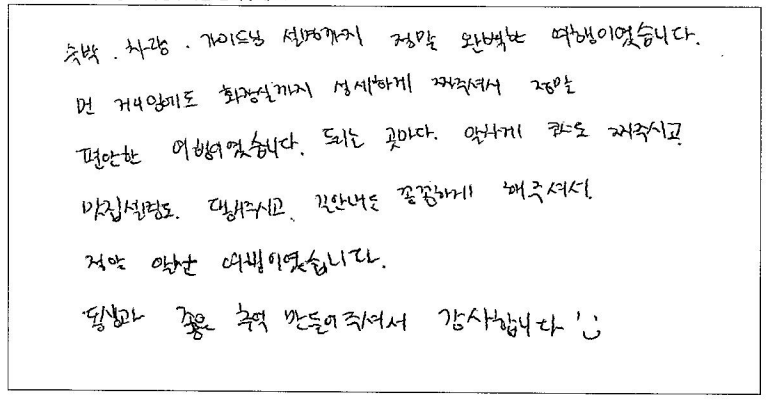 숙박. 차량. 가이드님 설명까지 정말 완벽한 여행이었습니다.
먼 거리임에도 화장실까지 섬세하게 짜주셔서 정말
편안한 여행이었습니다. 들리는 곳마다. 알차게 코스도 짜주시고
맛집선정도. 대해주시고 길안내도 꼼꼼하게 해주셔서.
정말 알찬 여행이였습니다.
동생과 좋은 추억 만들어주셔서 감사합니다 :)